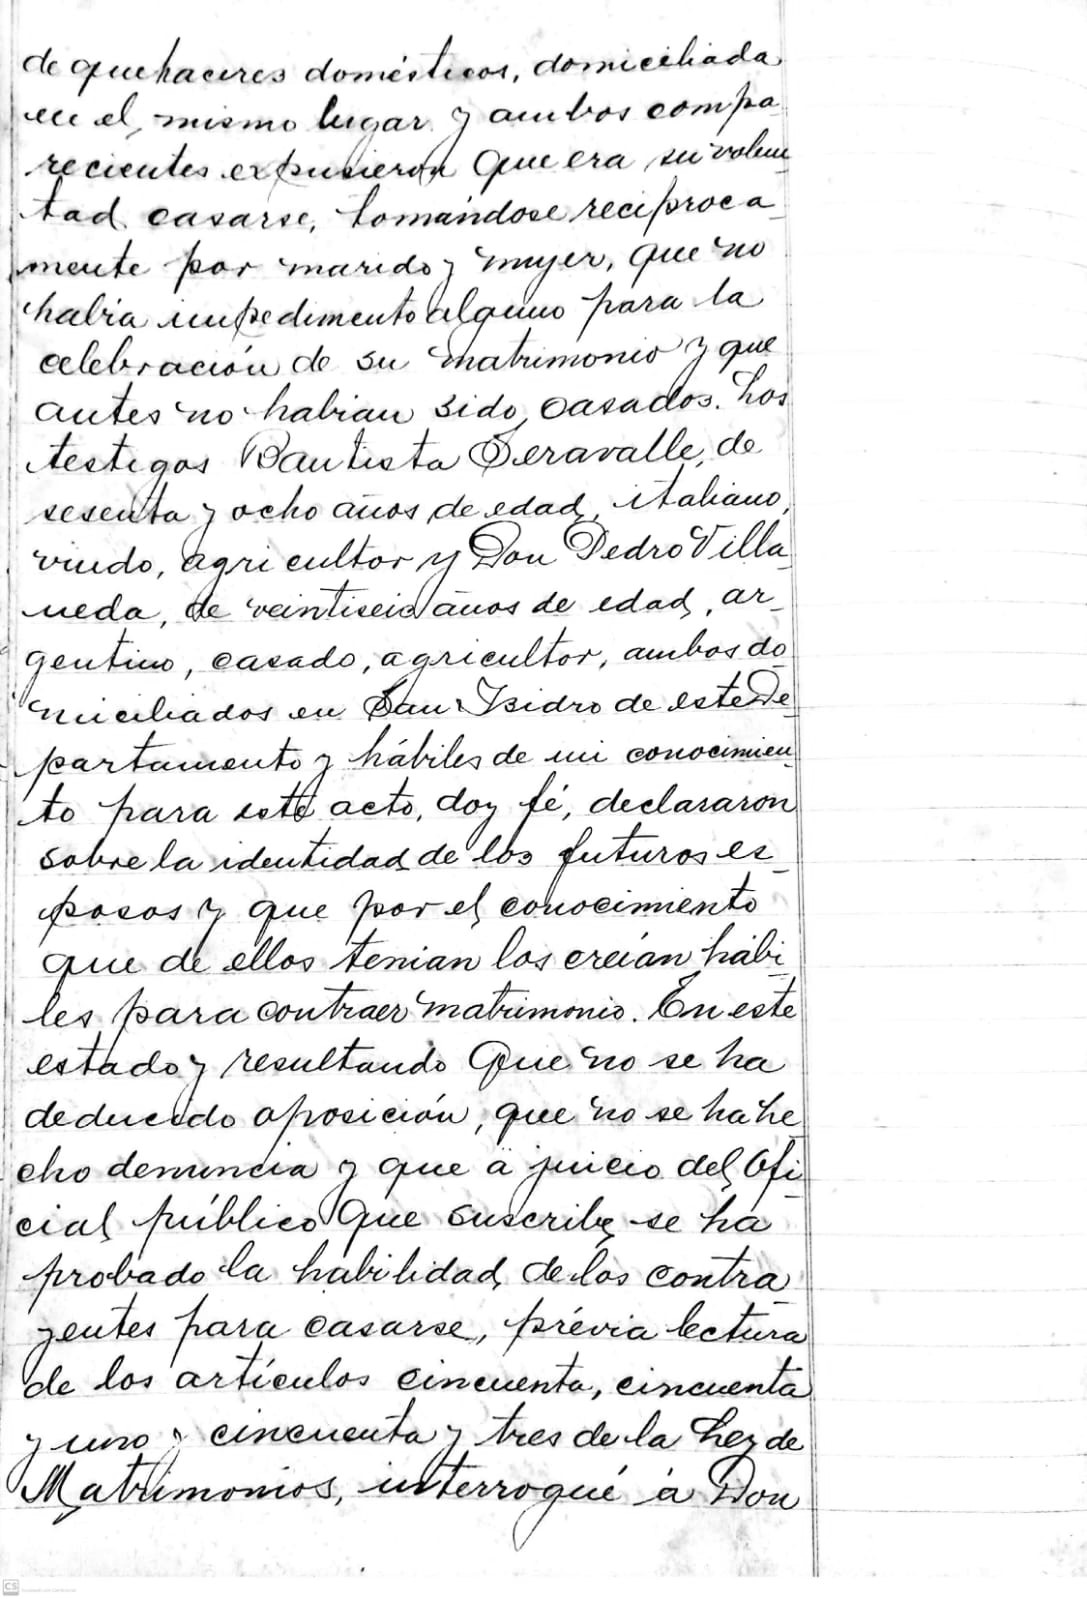 de quehaceres domésticos, domiciliada
en el mismo lugar y ambos compa
recientes expusieron Que era su volun
tad casarse, tomándose reciproca
mente por marido y muyer, que no
habia impedimento alguno para la
celebración de su matrimonio y que
antes no habian sido casados. Los
testigos Bautista Seravalle, de
sesenta y ocho años de edad, italiano,
viudo, agricultor y Don Pedro Villa
nueda, de veintiseis años de edad, ar_
gentino, casado, agricultor, ambos do
miciliados en San Isidro de este De
partamento y hábiles de mi conocimien
to para este acto, doy fé, declararon
sobre la identidad de los futuros es_
posos y que por el conocimiento
que de ellos tenian los creían hábi
les para contraer matrimonio. En este
estado y resultando Que no se ha
deducido oposición, que no se ha he
cho denuncia y que á juicio del Ofi
cial público Que suscribe se ha
probado la habilidad de los contra
yentes para casarse, prévia lectura
de los artículos cincuenta, cincuenta
y uno y cincuenta y tres de la Ley de
Matrimonios, interrogué á Don
CS